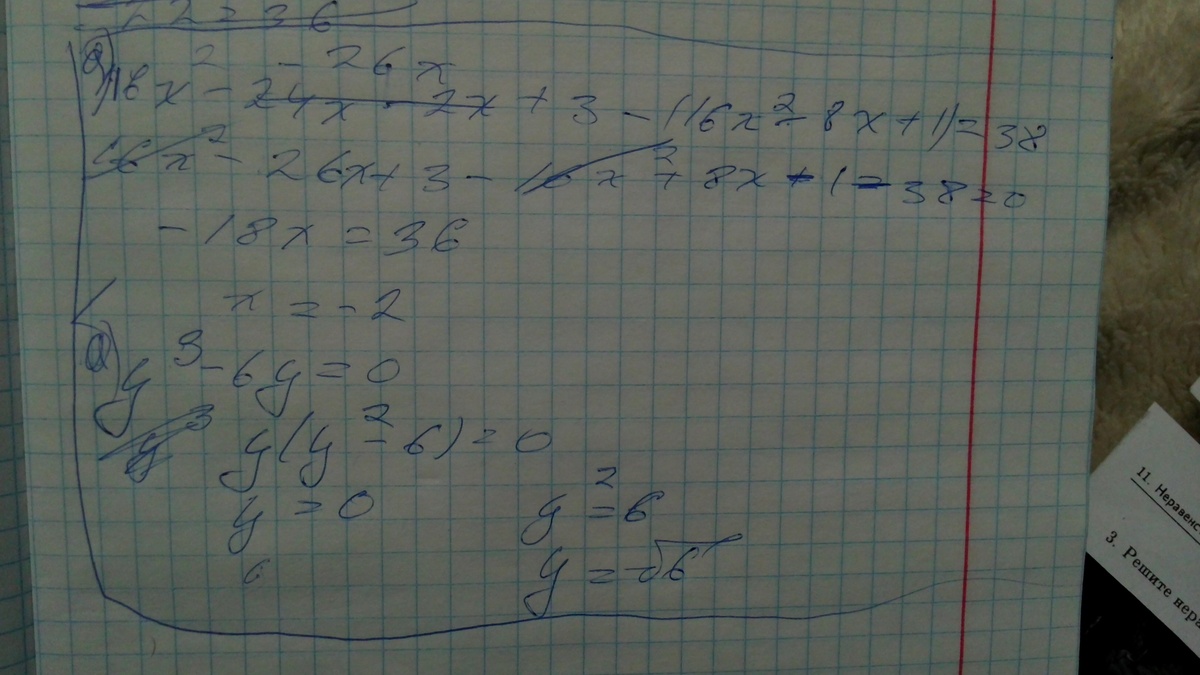 22=36
- 26x
16x² - 24x - 2x + 3 - (16x² - 8x + 1) = 38
16x² - 26x + 3 - 16x² + 8x - 1 - 38 = 0
-18x = 36
x = -2
y³ - 6y = 0
y³ y(y² - 6) = 0
y = 0 y² = 6
6 y = -√6
11. Неравенс
3. Решите нера